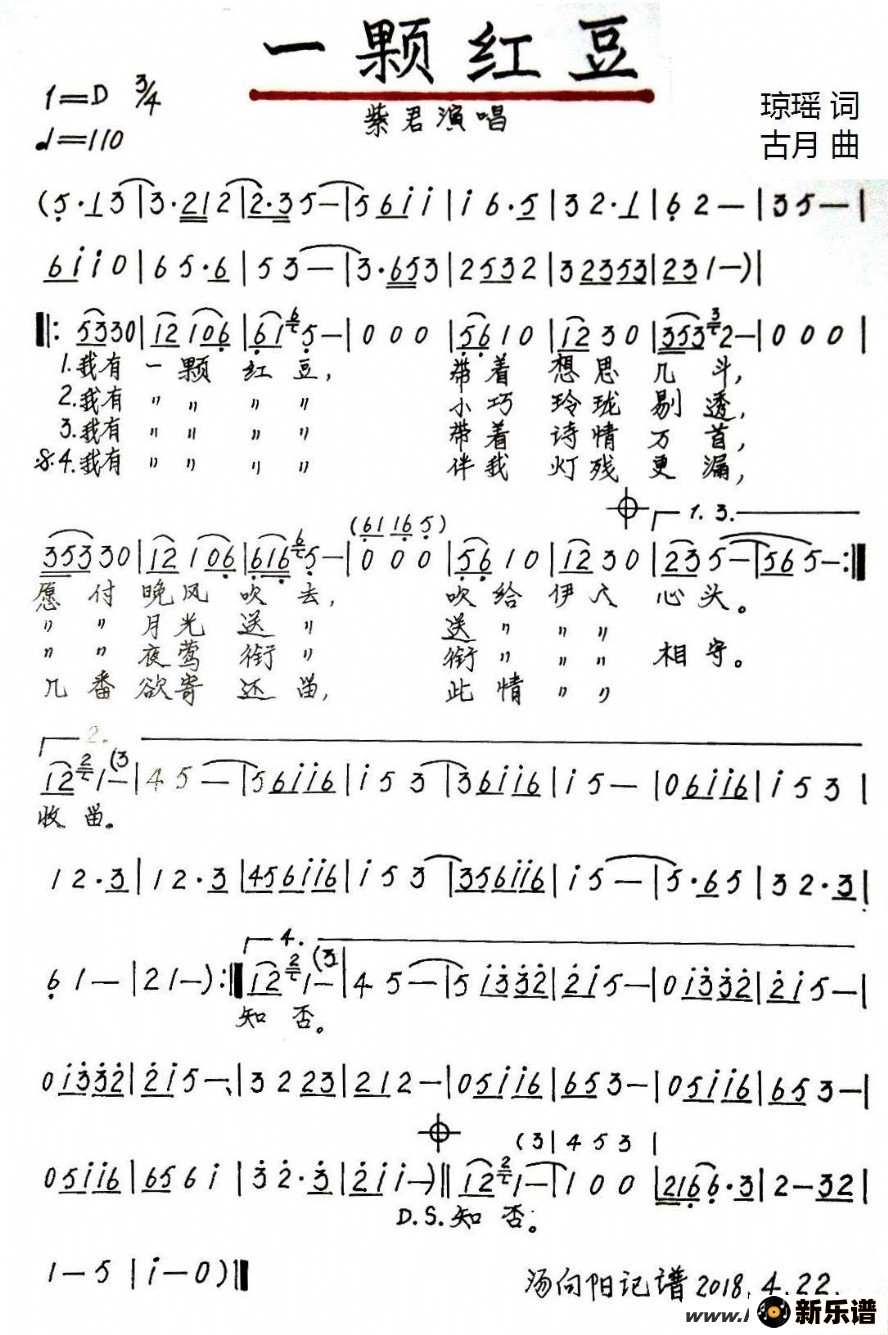 一颗红豆
1=D 3/4
♩=110
紫君演唱
琼瑶 词
古月 曲
(5·13|3·212|2·35—|56ii|i6·5|32·1|62—|35—|
6ii0|65·6|53—|3·653|2532|32353|231—)|
‖:53330|12106|6165—|000|5610|1230|35332—|000|
1.我有一颗红豆, 带着想思几斗,
2.我有〃〃〃〃 小巧玲珑剔透,
3.我有〃〃〃〃 带着诗情万首,
:S:4.我有〃〃〃〃 伴我灯残更漏,
1. 3.
(61 16 5)
35330|12106|61665—|000|5610|1230|235—|565—:‖
愿付晚风吹去, 吹给伊人心头。
〃〃月光送〃 送〃〃〃
〃〃夜莺衔〃 衔〃〃〃相守。
几番欲寄还留, 此情〃〃
2.
1221—(3|45—|56ii6|i53|36ii6|i5—|06ii6|i53|
收留。
12·3|12·3|456ii6|i53|356ii6|i5—|5·65|32·3|
4.
61—|21—):‖1221—(3|45—|5i332|2i5—|0i332|2i5—|
知否。
0i332|2i5—|3223|212—|05ii6|653—|05ii6|653—|
(3|453|
05ii6|656i|32·3|2ii—)‖1221—|100|2166·3|2—32|
D.S.知否。
1—5|i—0)‖
汤向阳记谱2018.4.22.
www.
新乐谱